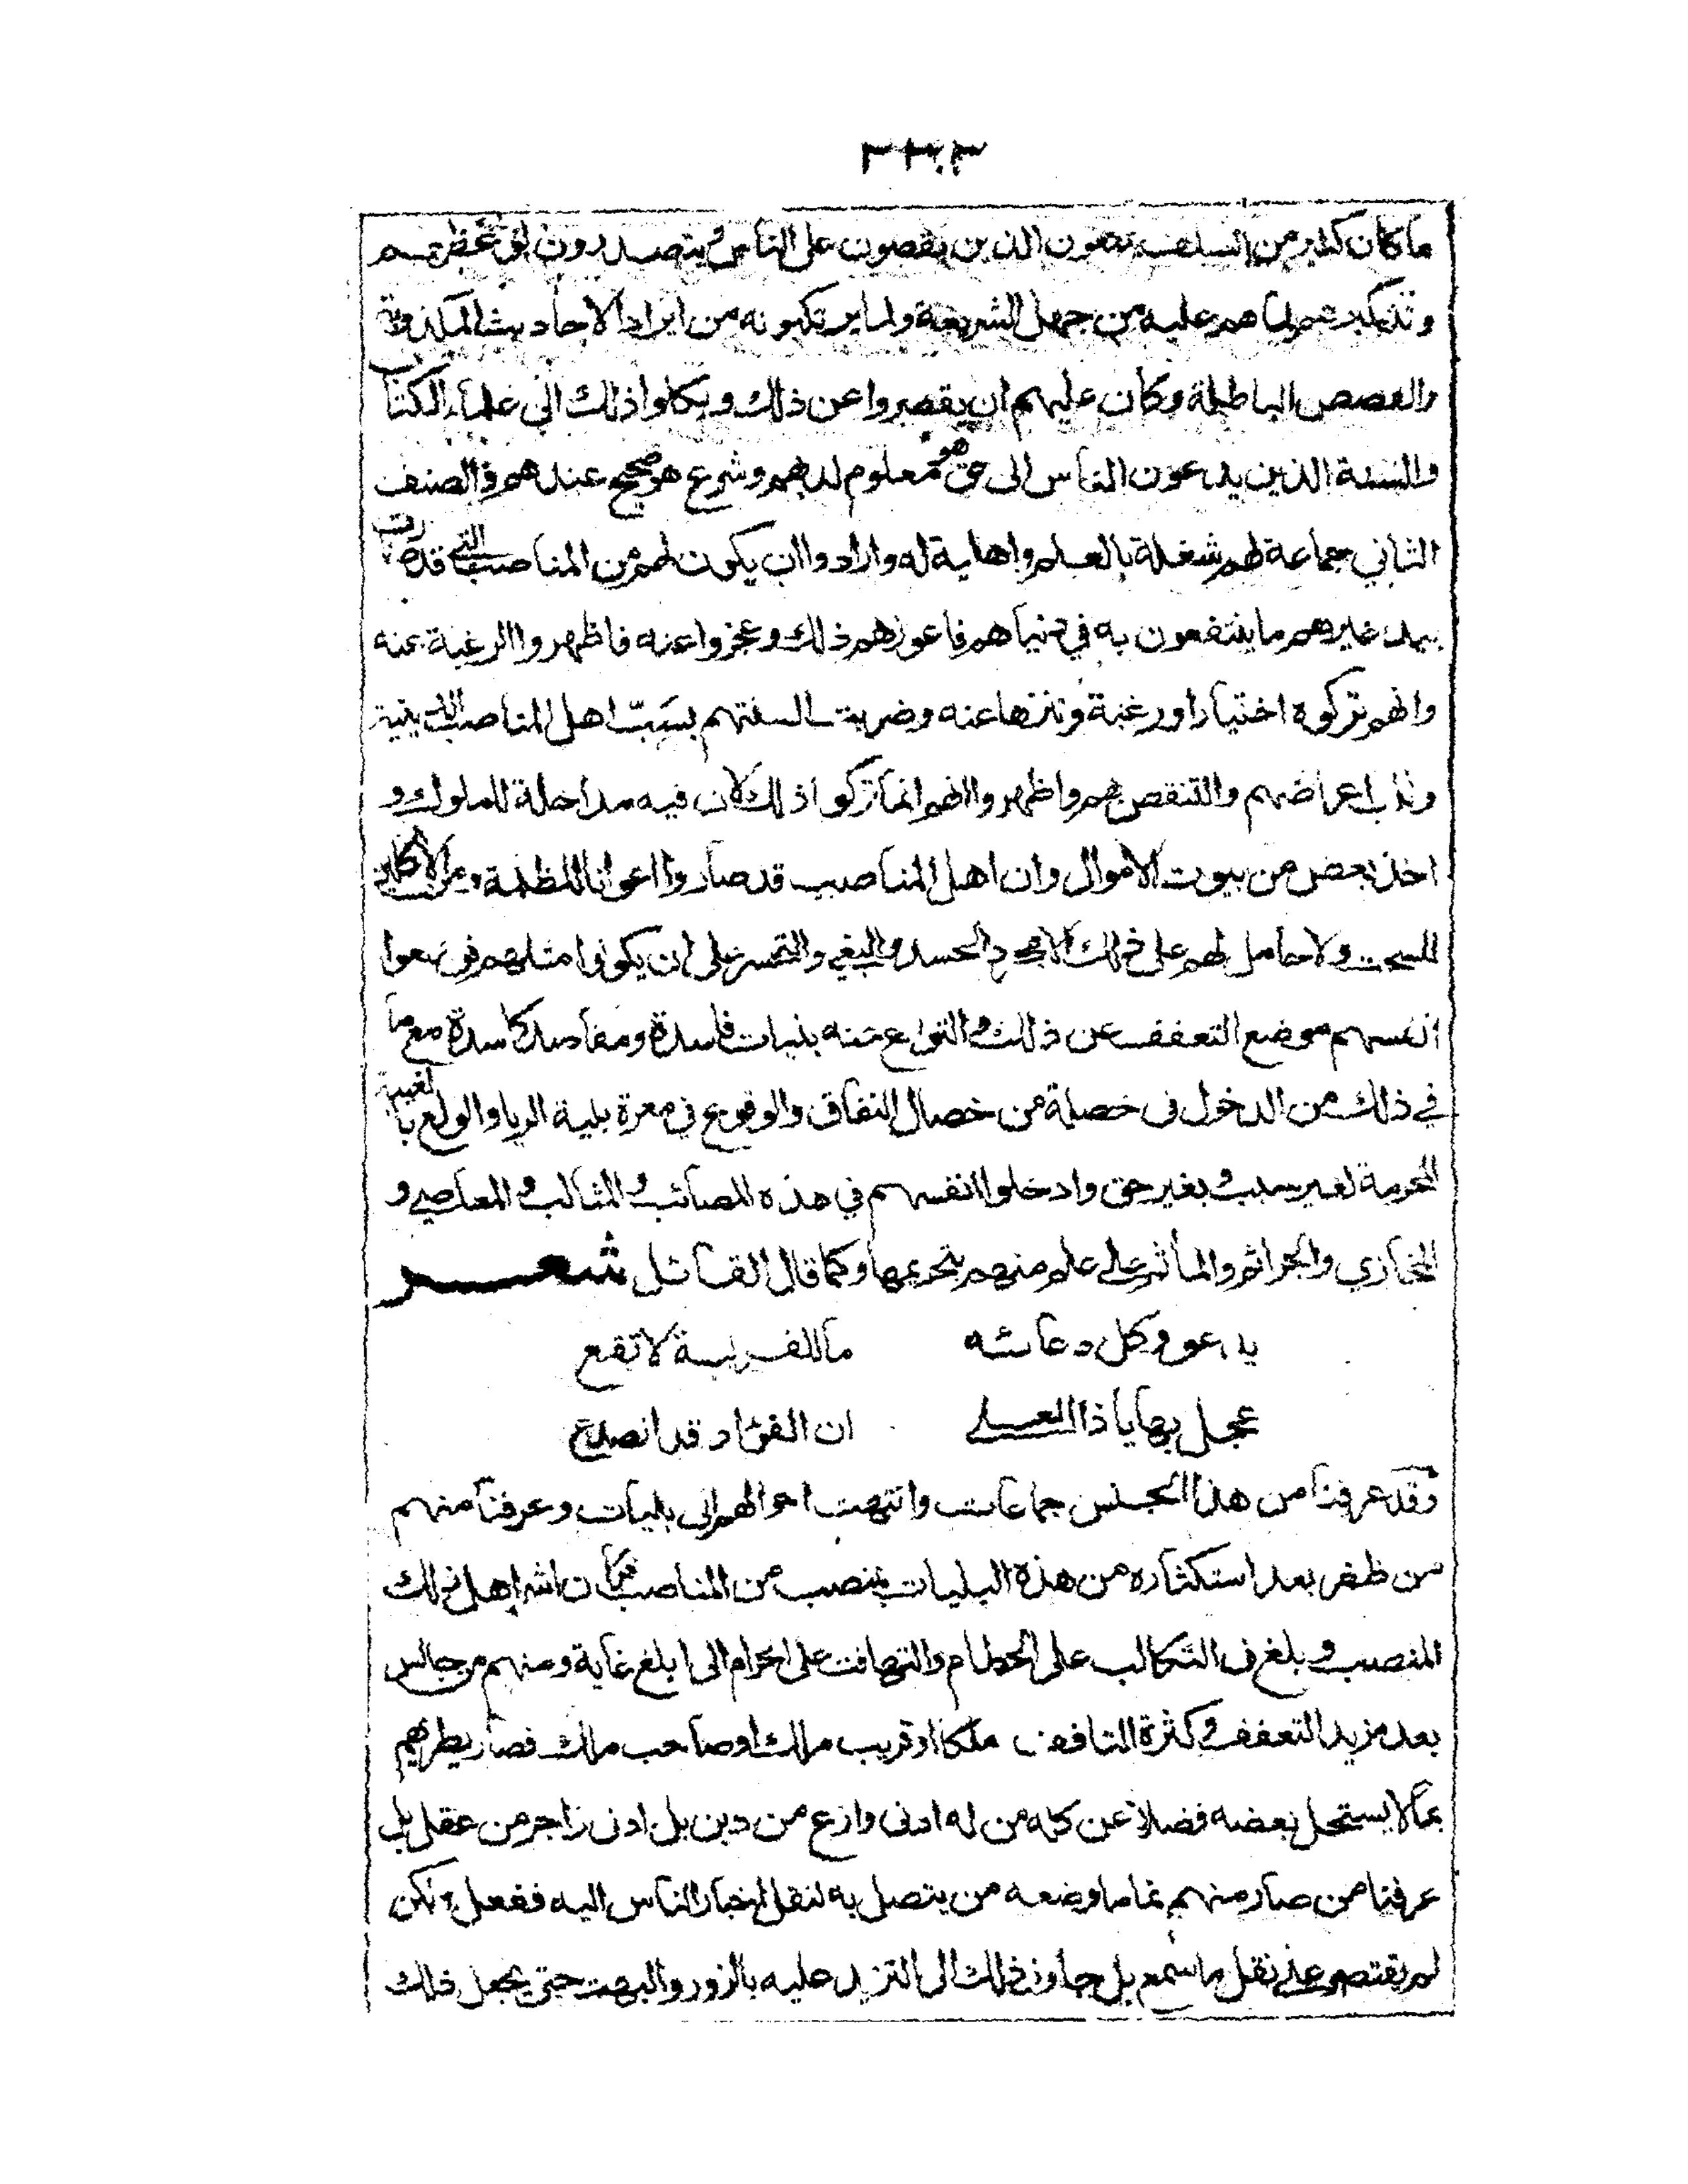 ما كان كثير من السلف يمنعون الذين يقصون على الناس ويتصدرون لوعظهم
وتذكيرهم لما هم عليه من جهل الشريعة ولما يرتكبونه من ايراد الاحاديث المكذوبة
والقصص الباطلة وكان عليهم ان يقصروا عن ذلك ويكلوا ذلك الى علماء الكتاب
والسنة الذين يدعون الناس الى حق هو معلوم لديهم وشرع هو صحيح عندهم والصنف
الثاني جماعة لهم شغلة بالعلم واهلية له وارادوا ان يكون لهم من المناصب التي قد صارت
بيد غيرهم ما ينتفعون به في دنياهم فاعوزهم ذلك وعجزوا عنه فاظهروا الرغبة عنه
وانهم تركوه اختيارا ورغبة وتنزها عنه وضربت السنتهم بسبّ اهل المناصب الدينية
وثلب اعراضهم والتنقص بهم واظهروا انهم انما تركوا ذلك لان فيه مداخلة للملوك و
اخذ بعض من بيوت الاموال وان اهل المناصب قد صاروا اعوانا للظلمة ومن الاكلين
للسحت ولا حامل لهم على ذلك الا مجرد الحسد والبغي والتحسر على ان يكونوا مثلهم فوضعوا
انفسهم موضع التعفف عن ذلك والتورع عنه بنيات فاسدة ومقاصد كاسدة مع ما
في ذلك من الدخول فى خصلة من خصال النفاق والوقوع في معرة بلية الريا والولع بالغيبة
المحرمة لغير سبب وبغير حق وادخلوا انفسهم في هذه المصائب والمثالب والمعاصي و
المخازي والجرائم والمآثم على علم منهم بتحريمها وكما قال القائل شعر
يدعو وكل دعائه ما للفريسة لا تقع
عجل بها يا ذا العلى ان الفؤاد قد انصدع
وقد عرفنا من هذا الجنس جماعات وانتهت احوالهم الى بليات وعرفنا منهم
من ظفر بعد استكثاره من هذه البليات بمنصب من المناصب فكان اشر اهل ذلك
المنصب وبلغ في التكالب على الحطام والتهافت على الحرام الى ابلغ غاية ومنهم من جالس
بعد مزيد التعفف وكثرة التافف ملكا او قريب ملك او صاحب ملك فصار يطريهم
بما لا يستحل بعضه فضلا عن كله من له ادنى وازع من دين بل ادنى زاجر من عقل بل
عرفنا من صار منهم نماما وضعه من يتصل به لنقل اخبار الناس اليه ففعل ولكن
لم يقتصر على نقل ما سمع بل جاوز ذلك الى التزيد عليه بالزور والبهت حتى يجعل ذلك